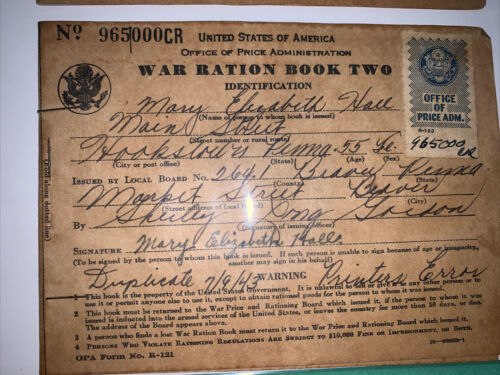 Nº 965000CR
UNITED STATES OF AMERICA
OFFICE OF PRICE ADMINISTRATION
WAR RATION BOOK TWO
IDENTIFICATION
OFFICE
OF
PRICE ADM.
R-123
965000
CR
Mary Elizabeth Hall
(Name of person to whom book is issued)
Main Street
(Street number or rural route)
Hookstown Penna 55 Fe.
(City or post office) (State) (Age) (Sex)
ISSUED BY LOCAL BOARD No. 264.1 Beaver Penna
(County) (State)
Market Street Beaver
(Street address of local board) (City)
By Shirley Gordon
(Signature of issuing officer)
SIGNATURE Mary Elizabeth Hall
(To be signed by the person to whom this book is issued. If such person is unable to sign because of age or incapacity,
another may sign in his behalf)
Duplicate WARNING Printers Error
1 This book is the property of the United States Government. It is unlawful to sell or give it to any other person or to
use it or permit anyone else to use it, except to obtain rationed goods for the person to whom it was issued.
2 This book must be returned to the War Price and Rationing Board which issued it, if the person to whom it was
issued is inducted into the armed services of the United States, or leaves the country for more than 30 days, or dies.
The address of the Board appears above.
3 A person who finds a lost War Ration Book must return it to the War Price and Rationing Board which issued it.
4 PERSONS WHO VIOLATE RATIONING REGULATIONS ARE SUBJECT TO $10,000 FINE OR IMPRISONMENT, OR BOTH.
OPA Form No. R-121
(Fold along dotted line)